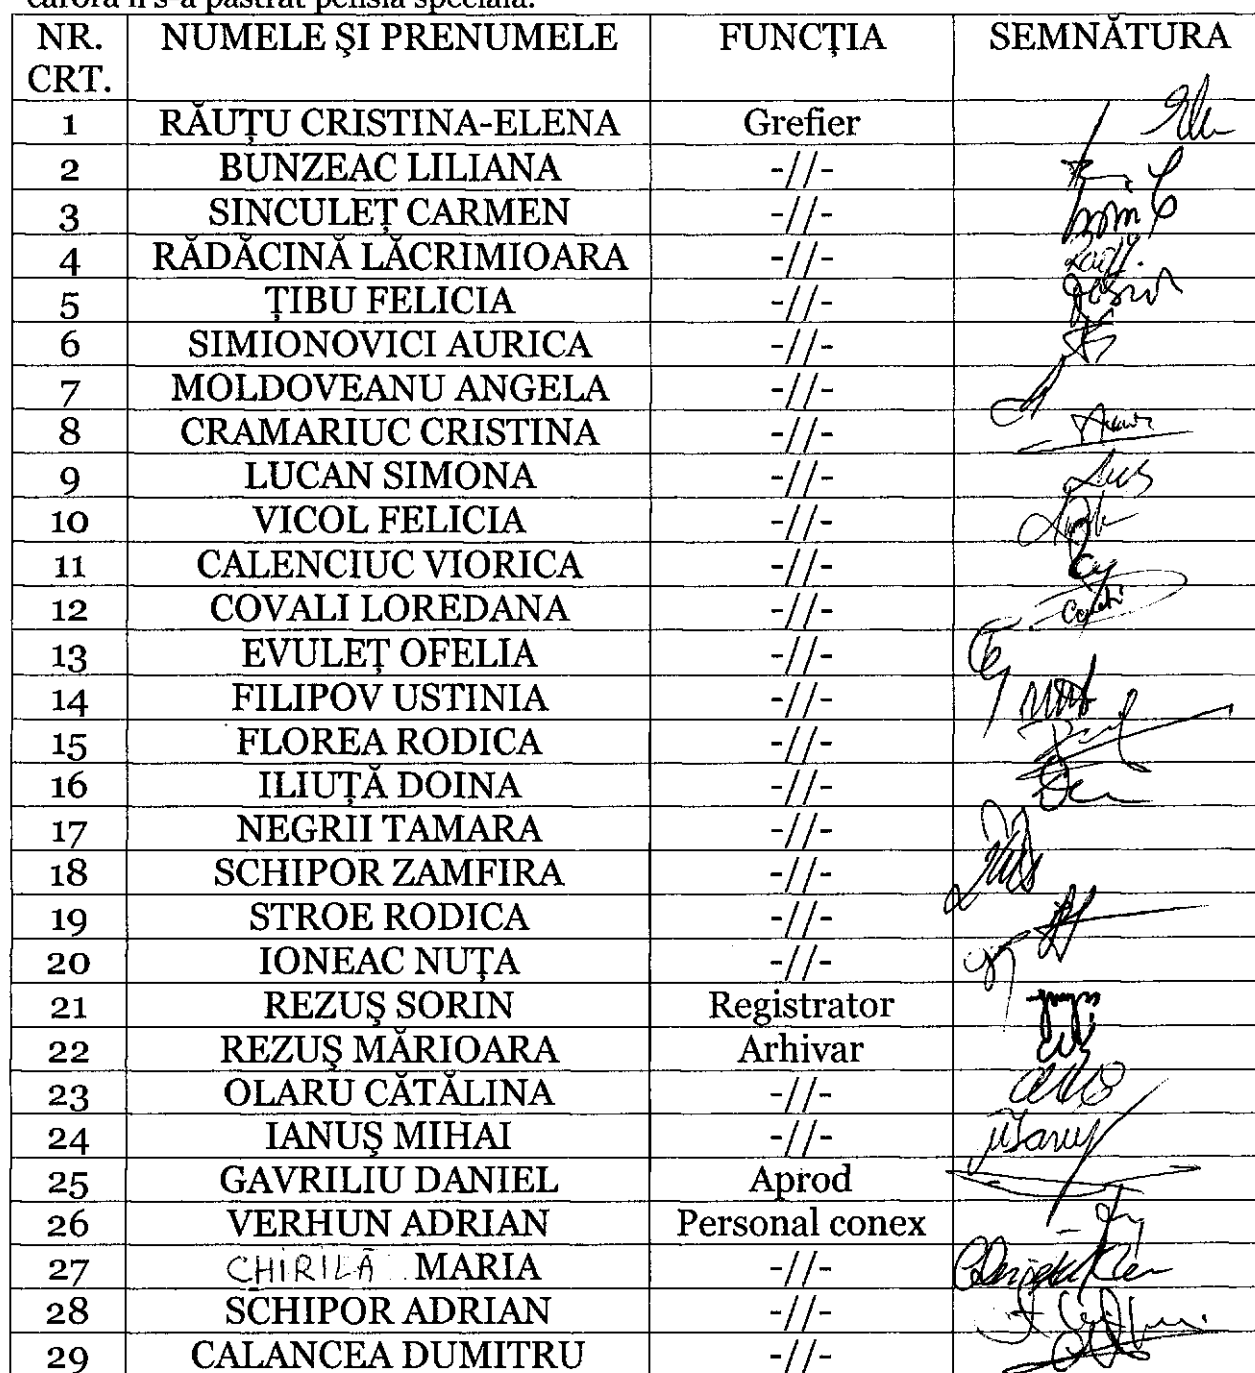 cărora li s-a păstrat pensia specială.
NR. CRT. NUMELE ŞI PRENUMELE FUNCŢIA SEMNĂTURA
1 RĂUŢU CRISTINA-ELENA Grefier
2 BUNZEAC LILIANA -//-
3 SINCULEŢ CARMEN -//-
4 RĂDĂCINĂ LĂCRIMIOARA -//-
5 ŢIBU FELICIA -//-
6 SIMIONOVICI AURICA -//-
7 MOLDOVEANU ANGELA -//-
8 CRAMARIUC CRISTINA -//-
9 LUCAN SIMONA -//-
10 VICOL FELICIA -//-
11 CALENCIUC VIORICA -//-
12 COVALI LOREDANA -//-
13 EVULEŢ OFELIA -//-
14 FILIPOV USTINIA -//-
15 FLOREA RODICA -//-
16 ILIUŢĂ DOINA -//-
17 NEGRII TAMARA -//-
18 SCHIPOR ZAMFIRA -//-
19 STROE RODICA -//-
20 IONEAC NUŢA -//-
21 REZUŞ SORIN Registrator
22 REZUŞ MĂRIOARA Arhivar
23 OLARU CĂTĂLINA -//-
24 IANUŞ MIHAI -//-
25 GAVRILIU DANIEL Aprod
26 VERHUN ADRIAN Personal conex
27 CHIRILĂ MARIA -//-
28 SCHIPOR ADRIAN -//-
29 CALANCEA DUMITRU -//-